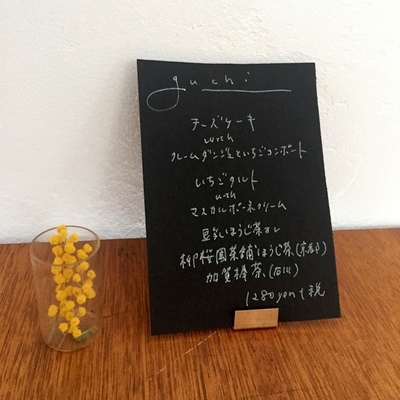 guchi
チーズケーキ
with
クレームダンジュといちごコンポート
いちごタルト
with
マスカルポーネクリーム
豆乳ほうじ茶オレ
柳桜園茶舗ほうじ茶(京都)
加賀棒茶(石川)
1280yen+税